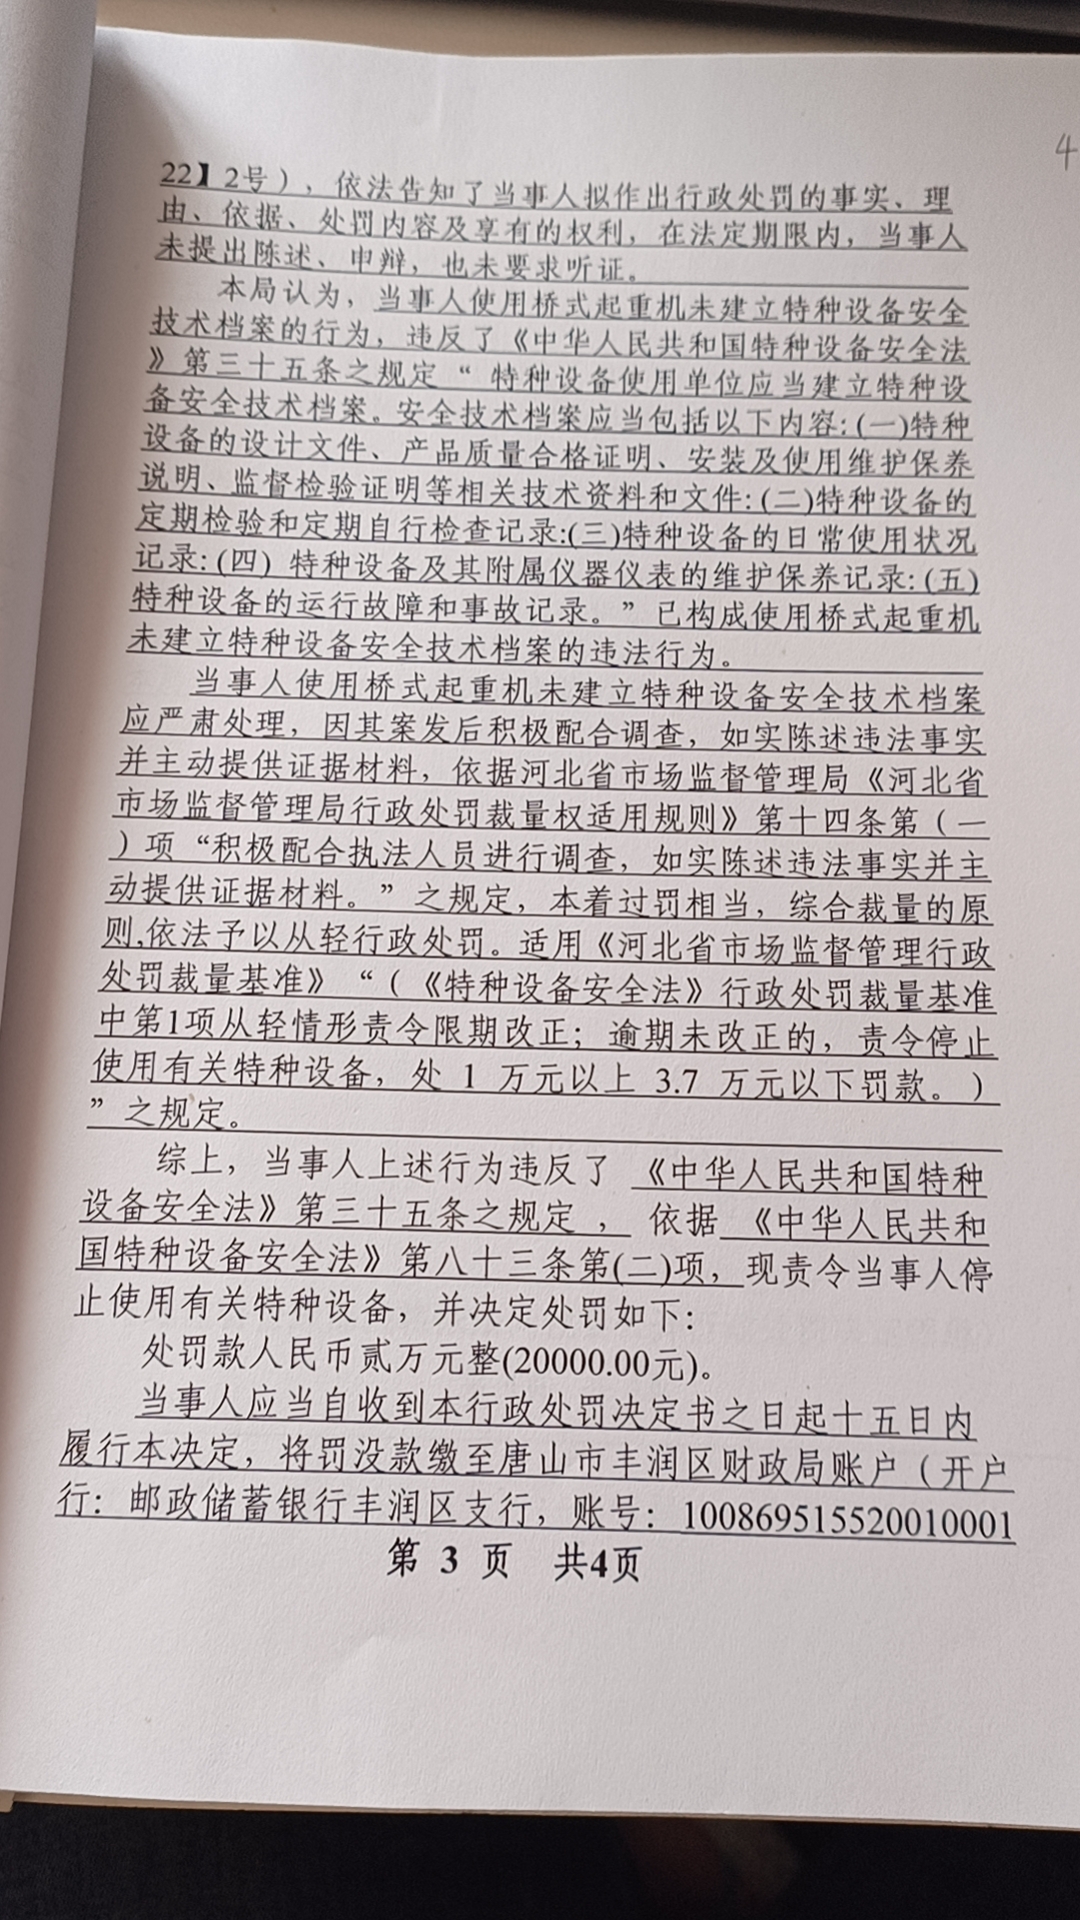 4
22】2号），依法告知了当事人拟作出行政处罚的事实、理
由、依据、处罚内容及享有的权利，在法定期限内，当事人
未提出陈述、申辩，也未要求听证。
本局认为，当事人使用桥式起重机未建立特种设备安全
技术档案的行为，违反了《中华人民共和国特种设备安全法
》第三十五条之规定“ 特种设备使用单位应当建立特种设
备安全技术档案。安全技术档案应当包括以下内容:(一)特种
设备的设计文件、产品质量合格证明、安装及使用维护保养
说明、监督检验证明等相关技术资料和文件:(二)特种设备的
定期检验和定期自行检查记录:(三)特种设备的日常使用状况
记录:(四) 特种设备及其附属仪器仪表的维护保养记录:(五)
特种设备的运行故障和事故记录。” 已构成使用桥式起重机
未建立特种设备安全技术档案的违法行为。
当事人使用桥式起重机未建立特种设备安全技术档案
应严肃处理，因其案发后积极配合调查，如实陈述违法事实
并主动提供证据材料，依据河北省市场监督管理局《河北省
市场监督管理局行政处罚裁量权适用规则》第十四条第（一
）项“积极配合执法人员进行调查，如实陈述违法事实并主
动提供证据材料。”之规定，本着过罚相当，综合裁量的原
则,依法予以从轻行政处罚。适用《河北省市场监督管理行政
处罚裁量基准》“（《特种设备安全法》行政处罚裁量基准
中第1项从轻情形责令限期改正；逾期未改正的，责令停止
使用有关特种设备，处 1 万元以上 3.7 万元以下罚款。）
”之规定。
综上，当事人上述行为违反了 《中华人民共和国特种
设备安全法》第三十五条之规定 ， 依据 《中华人民共和
国特种设备安全法》第八十三条第(二)项，现责令当事人停
止使用有关特种设备，并决定处罚如下：
处罚款人民币贰万元整(20000.00元)。
当事人应当自收到本行政处罚决定书之日起十五日内
履行本决定，将罚没款缴至唐山市丰润区财政局账户（开户
行：邮政储蓄银行丰润区支行，账号：100869515520010001
第 3 页 共4页